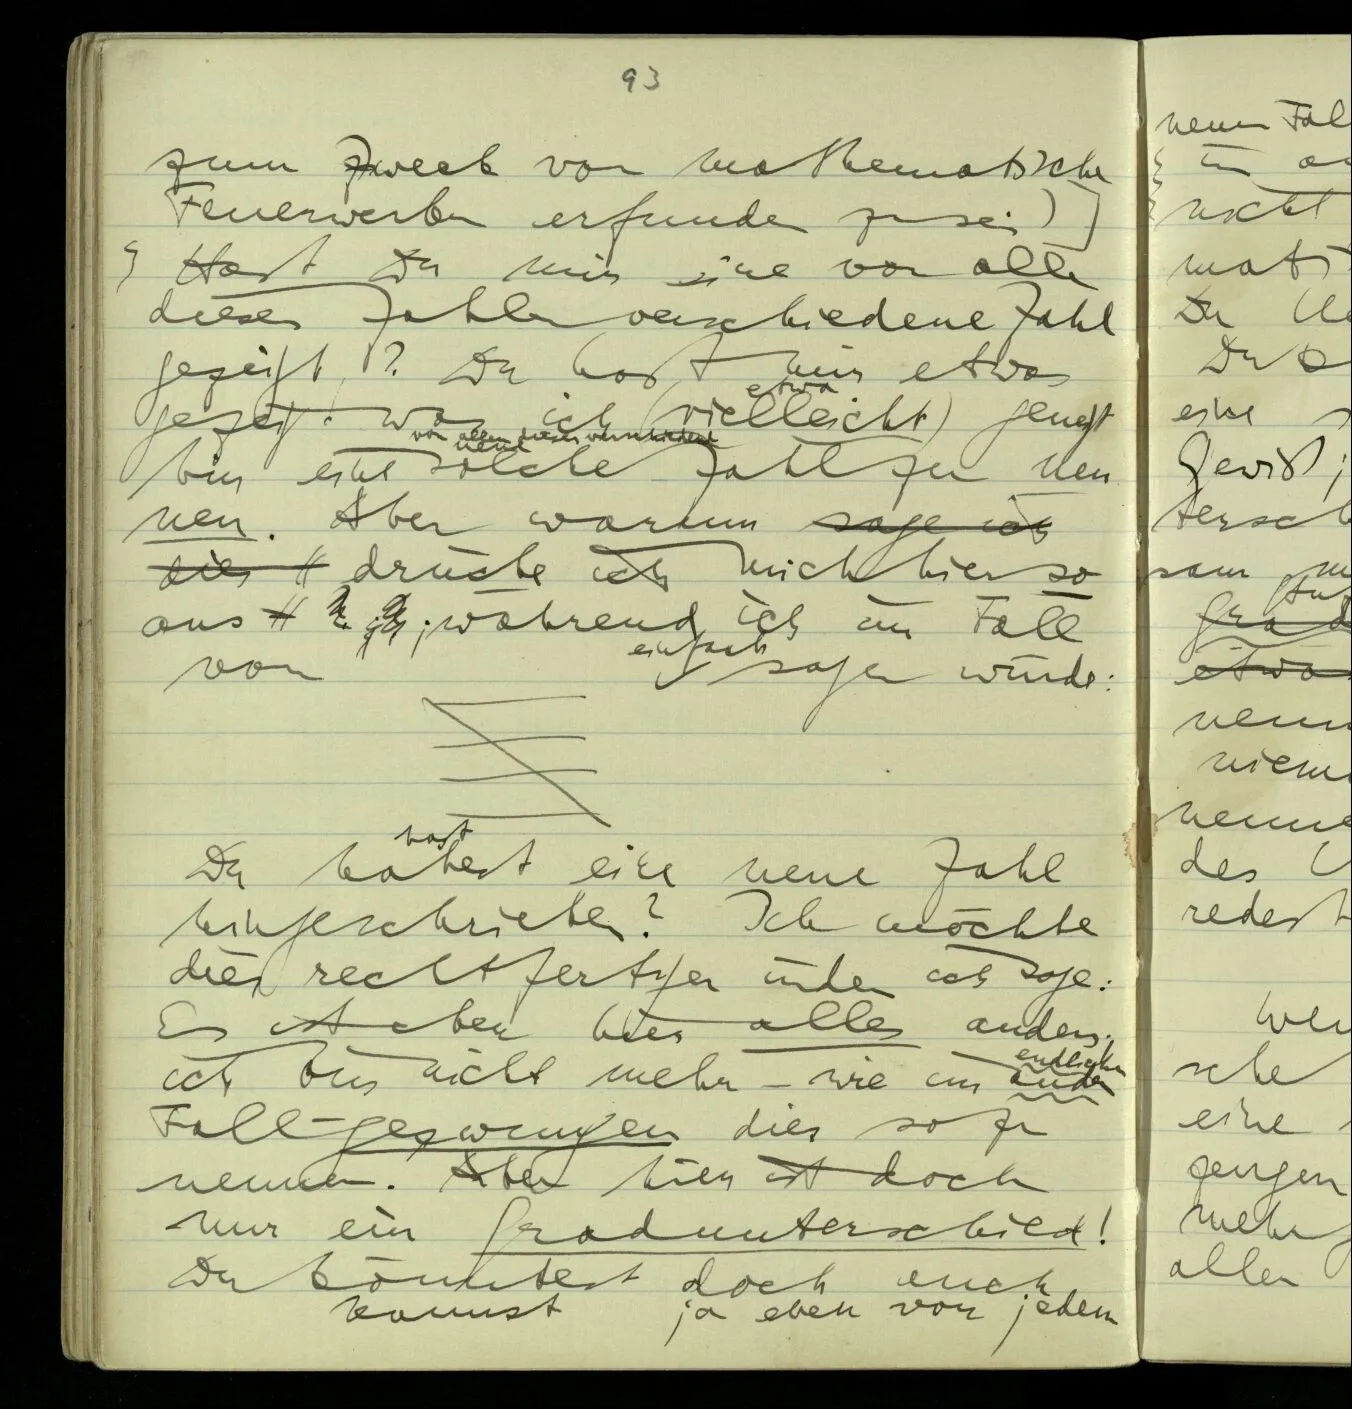 93
zum Zweck von mathematische
Feuerwerken erfunden zu sei)]
Hast Du mir eine von alle
diesen Zahlen verschiedene Zahl
gezeigt? Du hast mir etwas
etwa
gezeigt was ich (vielleicht) geneigt
von allen diesen verschiedene
neue
bin eine solche Zahl zu nen
nen. Aber warum sage ich
dies drücke ich mich hier so
aus ; während ich im Fall
einfach
von sagen würde:
hast
Du habest eine neue Zahl
hingeschrieben? Ich möchte
dies rechtfertigen indem ich sage:
Es ist eben hier alles anders.
endlichen
ich bin nicht mehr – wie im andern
Fall – gezwungen dies so zu
nennen. Aber hier ist doch
nur ein Gradunterschied!
Du könntest doch auch
kannst ja eben von jedem
neuen Fal
in
nicht
mat
Du
Du
eine
Gewiß;
tersch
sam
grad
etwa
nenn
niem
nenne
des
redest
wen
sche
eine
zeugen
mehr
allen